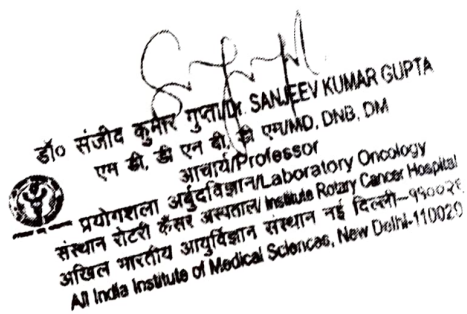 डॉ० संजीद कुमार गुप्ता/Dr. SANJEEV KUMAR GUPTA
एम डी, डी एन बी, डी एम/MD, DNB, DM
आचार्य/Professor
प्रयोगशाला अर्बुदविज्ञान/Laboratory Oncology
संस्थान रोटरी कैंसर अस्पताल/Institute Rotary Cancer Hospital
अखिल भारतीय आयुर्विज्ञान संस्थान नई दिल्ली–
All India Institute of Medical Sciences, New Delhi-110029